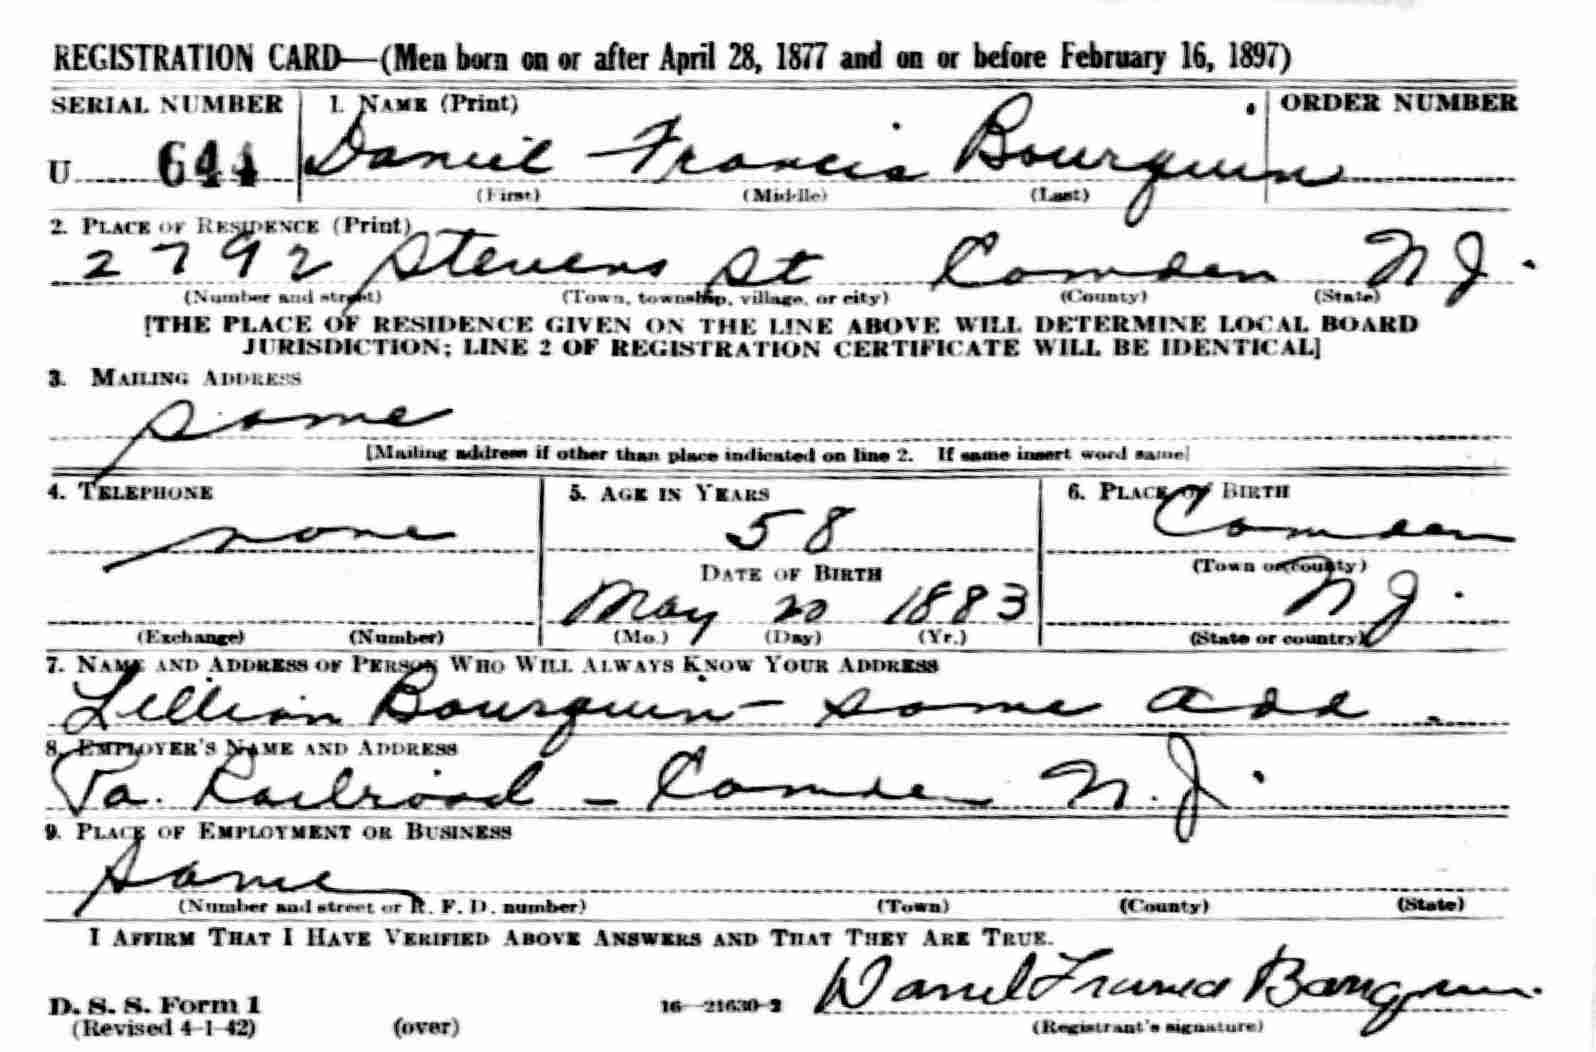 REGISTRATION CARD—(Men born on or after April 28, 1877 and on or before February 16, 1897)
SERIAL NUMBER 1. NAME (Print) ORDER NUMBER
U 644 Daniel Francis Bourquin
(First) (Middle) (Last)
2. PLACE OF RESIDENCE (Print)
2792 Stevens St Camden N J.
(Number and street) (Town, township, village, or city) (County) (State)
[THE PLACE OF RESIDENCE GIVEN ON THE LINE ABOVE WILL DETERMINE LOCAL BOARD
JURISDICTION; LINE 2 OF REGISTRATION CERTIFICATE WILL BE IDENTICAL]
3. MAILING ADDRESS
Same
[Mailing address if other than place indicated on line 2. If same insert word same]
4. TELEPHONE 5. AGE IN YEARS 6. PLACE OF BIRTH
none 58 Camden
DATE OF BIRTH (Town or county)
May 20 1883 N J.
(Exchange) (Number) (Mo.) (Day) (Yr.) (State or country)
7. NAME AND ADDRESS OF PERSON WHO WILL ALWAYS KNOW YOUR ADDRESS
Lillian Bourquin - same add.
8. EMPLOYER'S NAME AND ADDRESS
Pa. Railroad - Camden N.J.
9. PLACE OF EMPLOYMENT OR BUSINESS
Same
(Number and street or R. F. D. number) (Town) (County) (State)
I AFFIRM THAT I HAVE VERIFIED ABOVE ANSWERS AND THAT THEY ARE TRUE.
Daniel Francis Bourquin
D. S. S. Form 1 16—21630-2
(Revised 4-1-42) (over) (Registrant's signature)